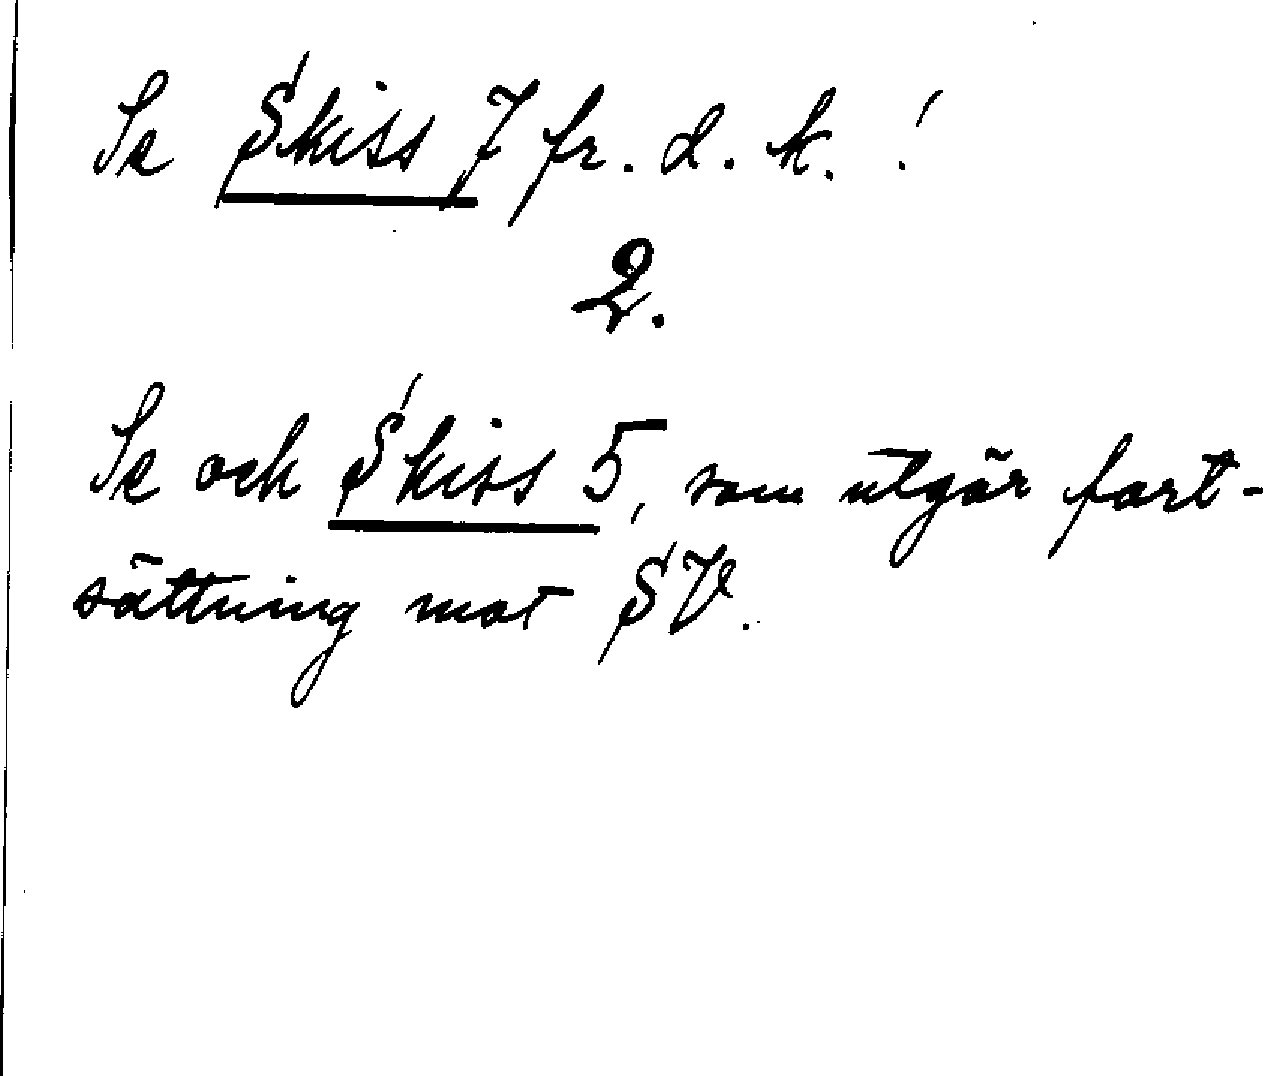 Se Skiss 7 fr. d. k. !
2.
Se och Skiss 5, som utgör fort-
sättning mot SV.